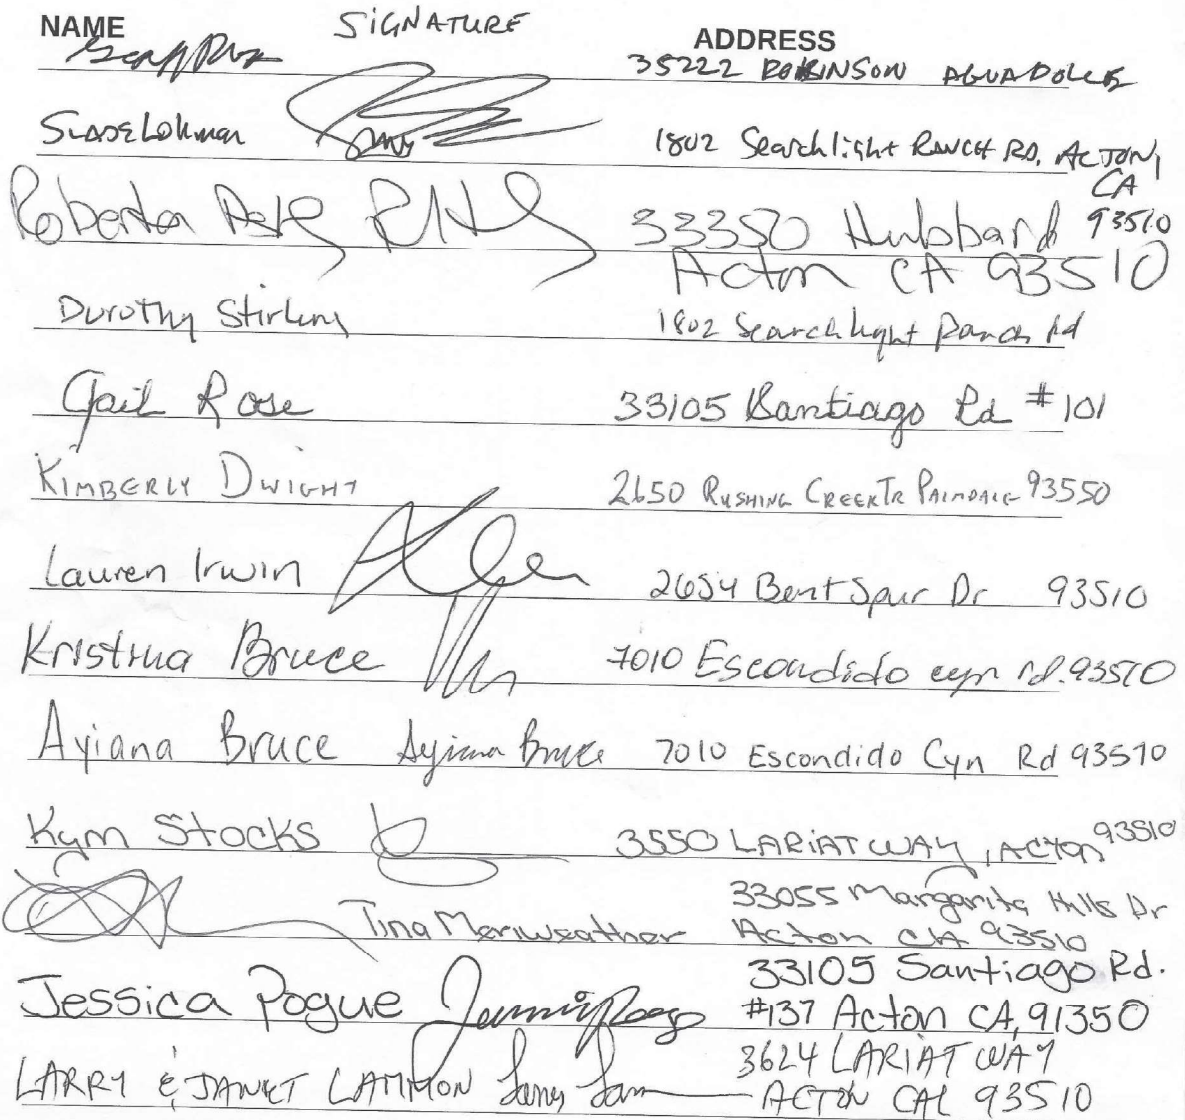 NAME SIGNATURE ADDRESS
35222 ROBINSON AGUA DOLCE
SLADE Lohman 1802 Searchlight RANCH RD, ACTON,
CA
93510
Roberta 33350 Hubbard
Acton CA 93510
Dorothy Stirling 1802 Searchlight Ranch Rd
Gail Rose 33105 Santiago Rd #101
KIMBERLY DWIGHT 2650 RUSHING CREEK TR PALMDALE 93550
Lauren Irwin 2654 Bent Spur Dr 93510
Kristina Bruce 7010 Escondido cyn rd. 93510
Ayiana Bruce Ayiana Bruce 7010 Escondido Cyn Rd 93510
Kym Stocks 3550 LARIAT WAY, ACTON 93510
33055 Margarita Hills Dr
Tina Meriweather Acton CA 93510
33105 Santiago Rd.
Jessica Pogue #137 Acton CA, 91350
3624 LARIAT WAY
LARRY & JANET LAMMON ACTON CAL 93510